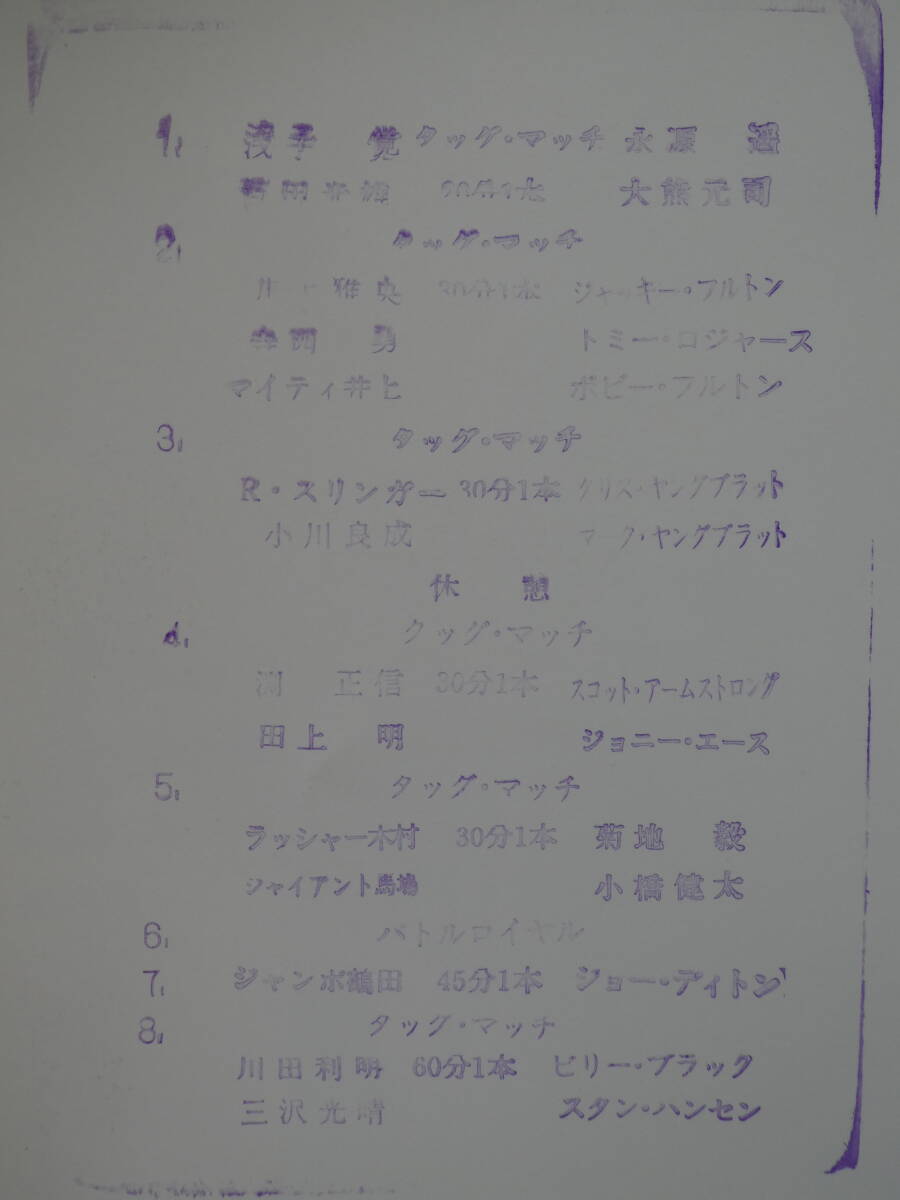 1. 浅子 覚 タッグ・マッチ 永源 遥
百田光雄 20分1本 大熊元司
2. タッグ・マッチ
井上雅央 30分1本 ジャッキー・フルトン
寺西 勇 トミー・ロジャース
マイティ井上 ボビー・フルトン
3. タッグ・マッチ
R・スリンガー 30分1本 クリス・ヤングブラット
小川良成 マーク・ヤングブラット
休憩
4. タッグ・マッチ
渕 正信 30分1本 スコット・アームストロング
田上 明 ジョニー・エース
5. タッグ・マッチ
ラッシャー木村 30分1本 菊地 毅
ジャイアント馬場 小橋健太
6. バトルロイヤル
7. ジャンボ鶴田 45分1本 ジョー・ディトン
8. タッグ・マッチ
川田利明 60分1本 ビリー・ブラック
三沢光晴 スタン・ハンセン